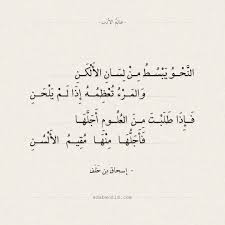 عالم الأدب
النَّحْوُ يَبْسُطُ مِنْ لِسَانِ الأَلْكَنِ
وَالمَرْءُ تُعْظِمُهُ إِذَا لَمْ يَلْحَنِ
فَإِذَا طَلَبْتَ مِنَ العُلُومِ أَجَلَّهَا
فَأَجَلُّهَا مِنْهَا مُقِيمُ الأَلْسُنِ
- إسحاق بن خلف